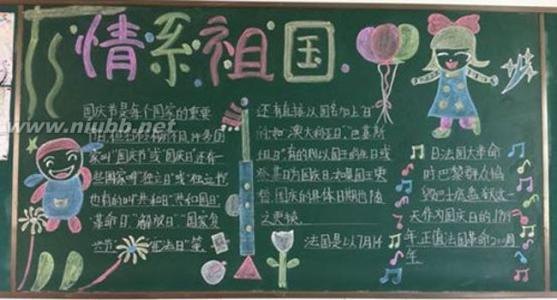 情系祖国
国庆节是每个国家的重要
节日,但名称有所不同,许多国
家叫"国庆节"或"国庆日",还有一
些国家叫"独立日"或"独立节"
也有的叫"共和日""共和国日"
"革命日""解放日""国家复
兴节" "宪法日"等
还有直接以国名加上"日"
的,如"澳大利亚日","巴基斯
坦日"有的则以国王的生日或
登基日为国庆日,如遇国王更
替,国庆的具体日期也随
之更换
法国是以7月14
日法国大革命
时巴黎群众攻
巴士底监狱这
天作为国庆日的,
年,正值法国革命200周
年
www.niubb.net